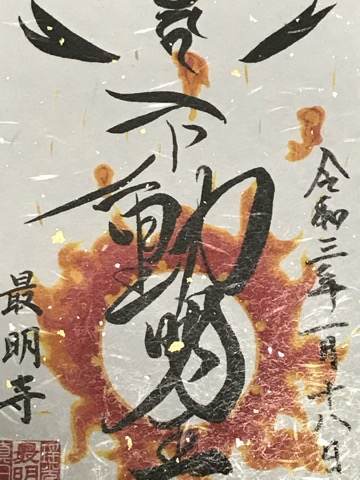 令和三年一月十八日
不動明王
最明寺